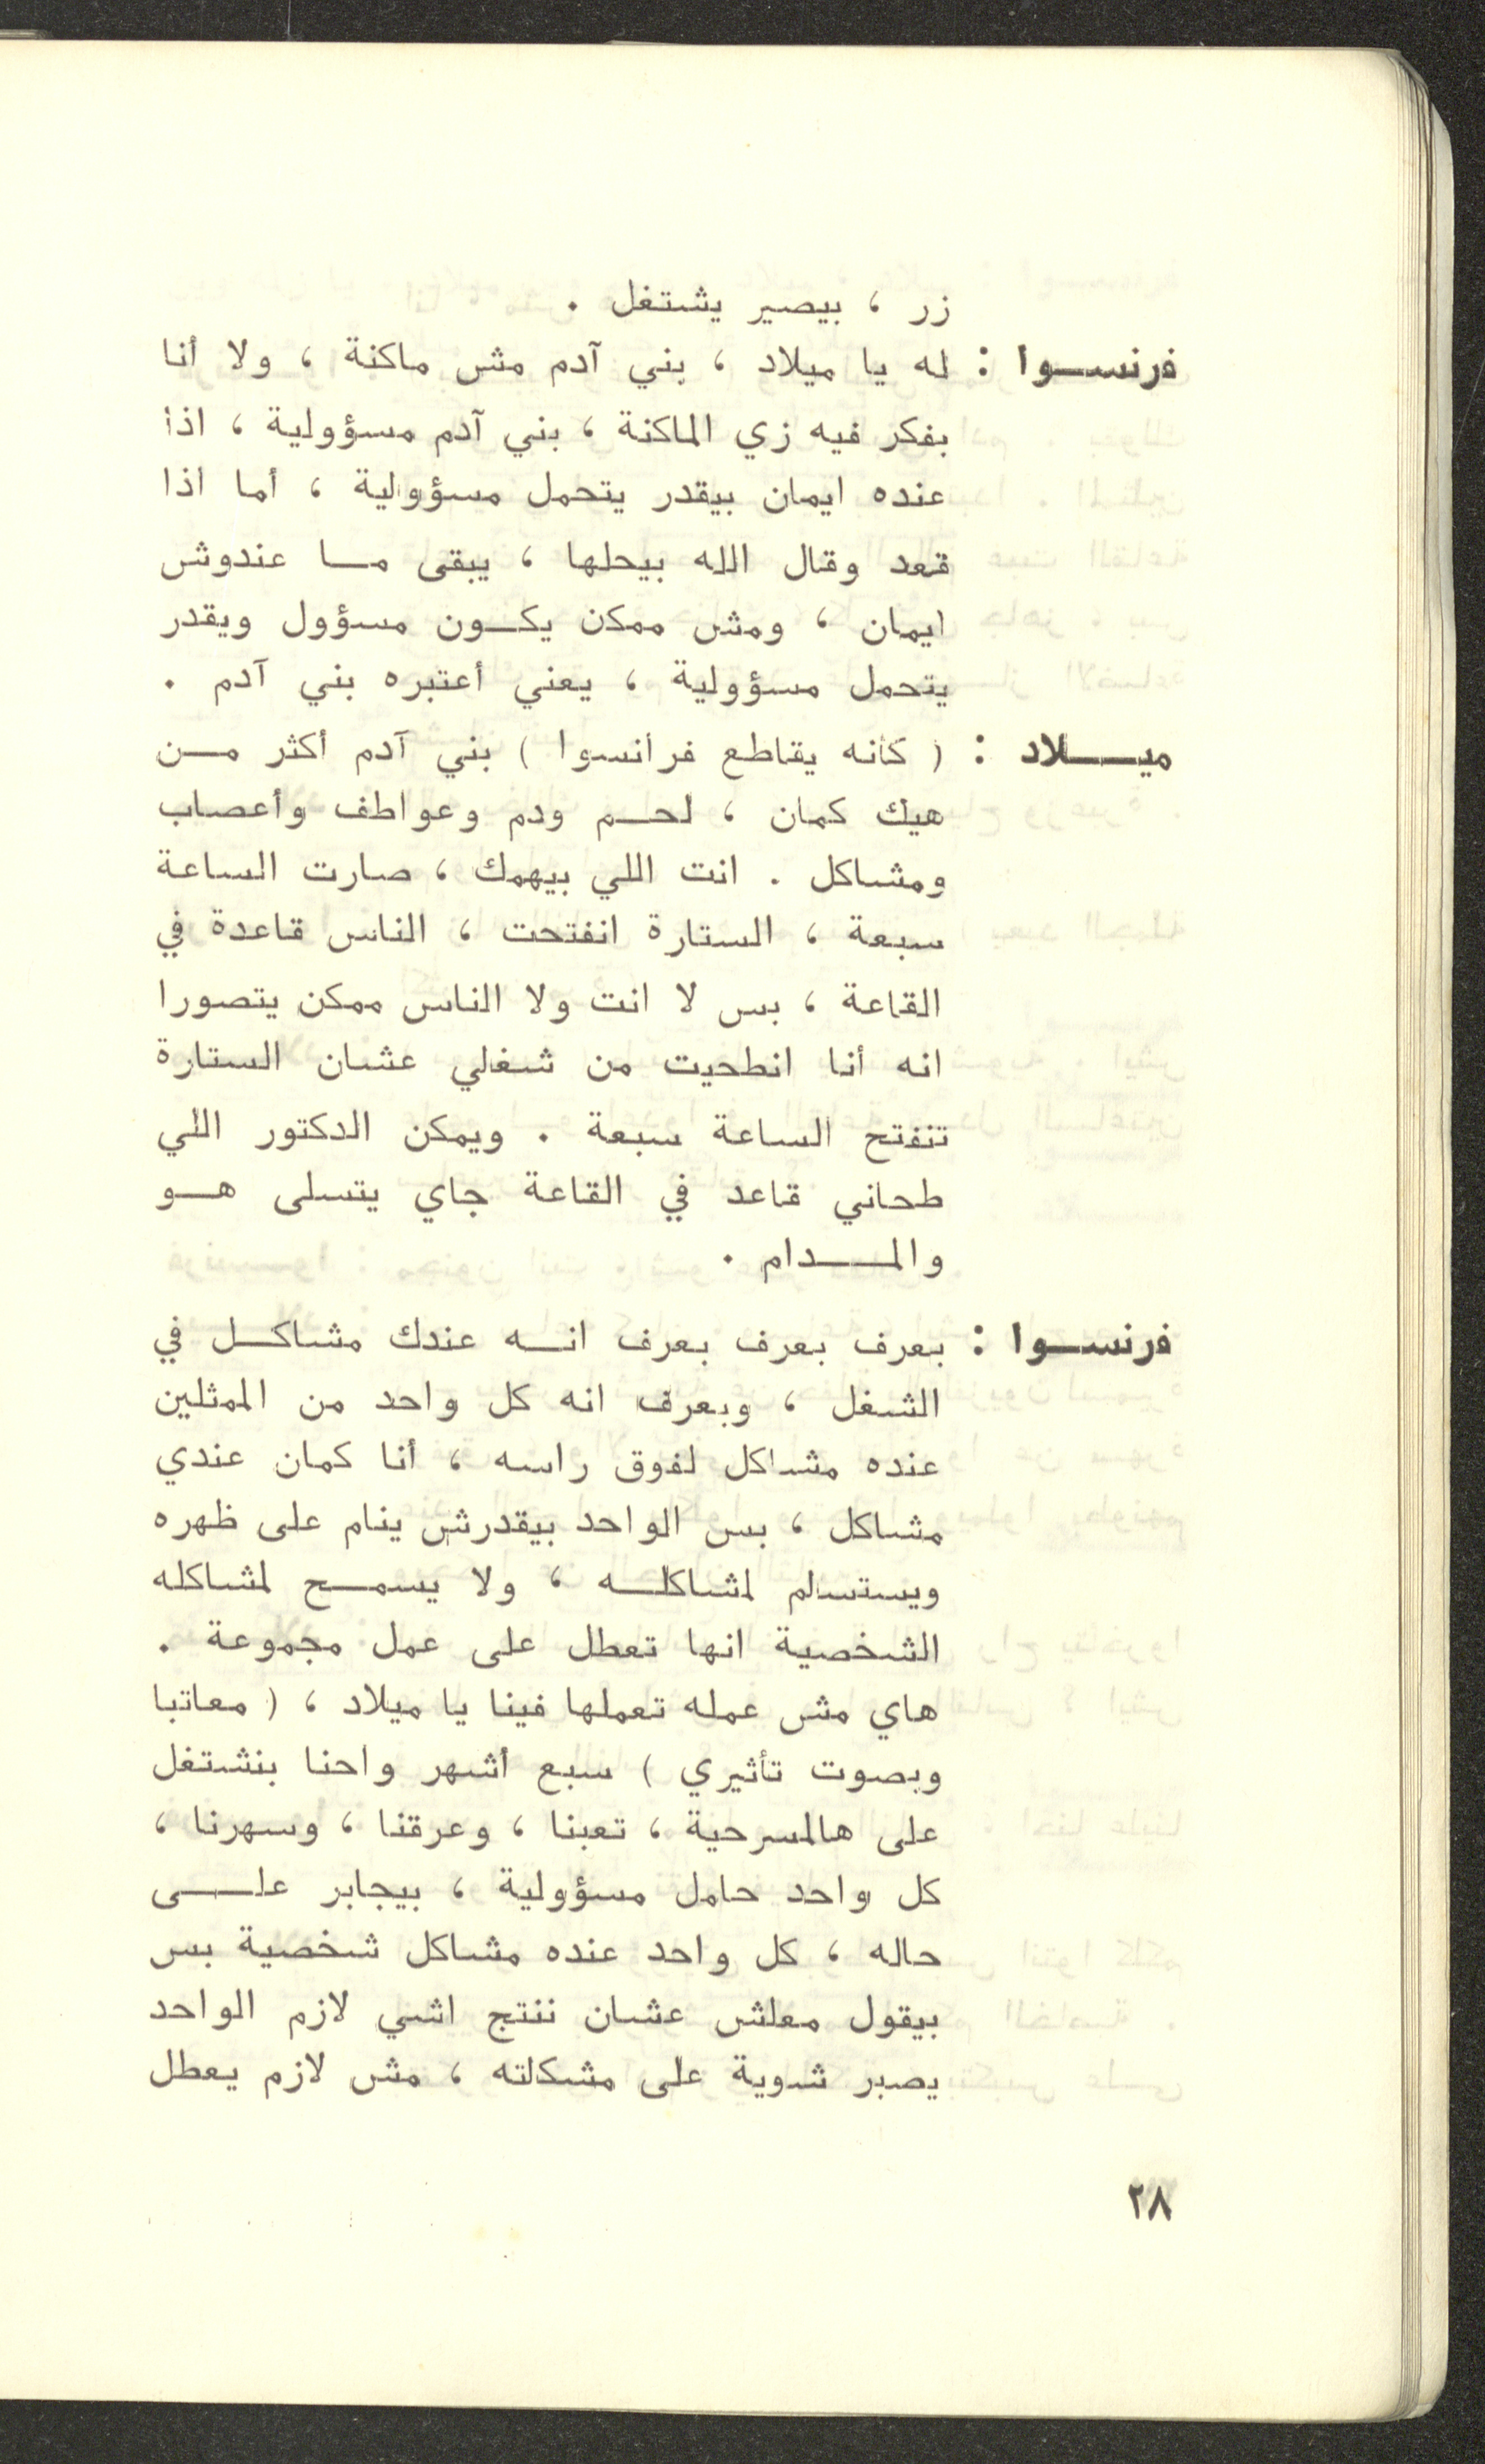 زر ، بيصير يشتغل .
فرنسوا : له يا ميلاد ، بني آدم مش ماكنة ، ولا أنا
بفكر فيه زي الماكنة ، بني آدم مسؤولية ، اذا
عنده ايمان بيقدر يتحمل مسؤولية ، أما اذا
قعد وقال الله بيحلها ، يبقى ما عندوش
ايمان ، ومش ممكن يكون مسؤول ويقدر
يتحمل مسؤولية ، يعني أعتبره بني آدم .
ميلاد : ( كأنه يقاطع فرأنسوا ) بني آدم أكثر من
هيك كمان ، لحم ودم وعواطف وأعصاب
ومشاكل . انت اللي بيهمك ، صارت الساعة
سبعة ، الستارة انفتحت ، الناس قاعدة في
القاعة ، بس لا انت ولا الناس ممكن يتصورا
انه أنا انطحيت من شغلي عشان الستارة
تنفتح الساعة سبعة . ويمكن الدكتور اللي
طحاني قاعد في القاعة جاي يتسلى هو
والمدام .
فرنسوا : بعرف بعرف بعرف انه عندك مشاكل في
الشغل ، وبعرف انه كل واحد من الممثلين
عنده مشاكل لفوق راسه ، أنا كمان عندي
مشاكل ، بس الواحد بيقدرش ينام على ظهره
ويستسلم لمشاكله ، ولا يسمح لمشاكله
الشخصية انها تعطل على عمل مجموعة .
هاي مش عمله تعملها فينا يا ميلاد ، ( معاتبا
وبصوت تأثيري ) سبع أشهر واحنا بنشتغل
على هالمسرحية ، تعبنا ، وعرقنا ، وسهرنا ،
كل واحد حامل مسؤولية ، بيجابر على
حاله ، كل واحد عنده مشاكل شخصية بس
بيقول معلش عشان ننتج اشي لازم الواحد
يصبر شوية على مشكلته ، مش لازم يعطل
٢٨